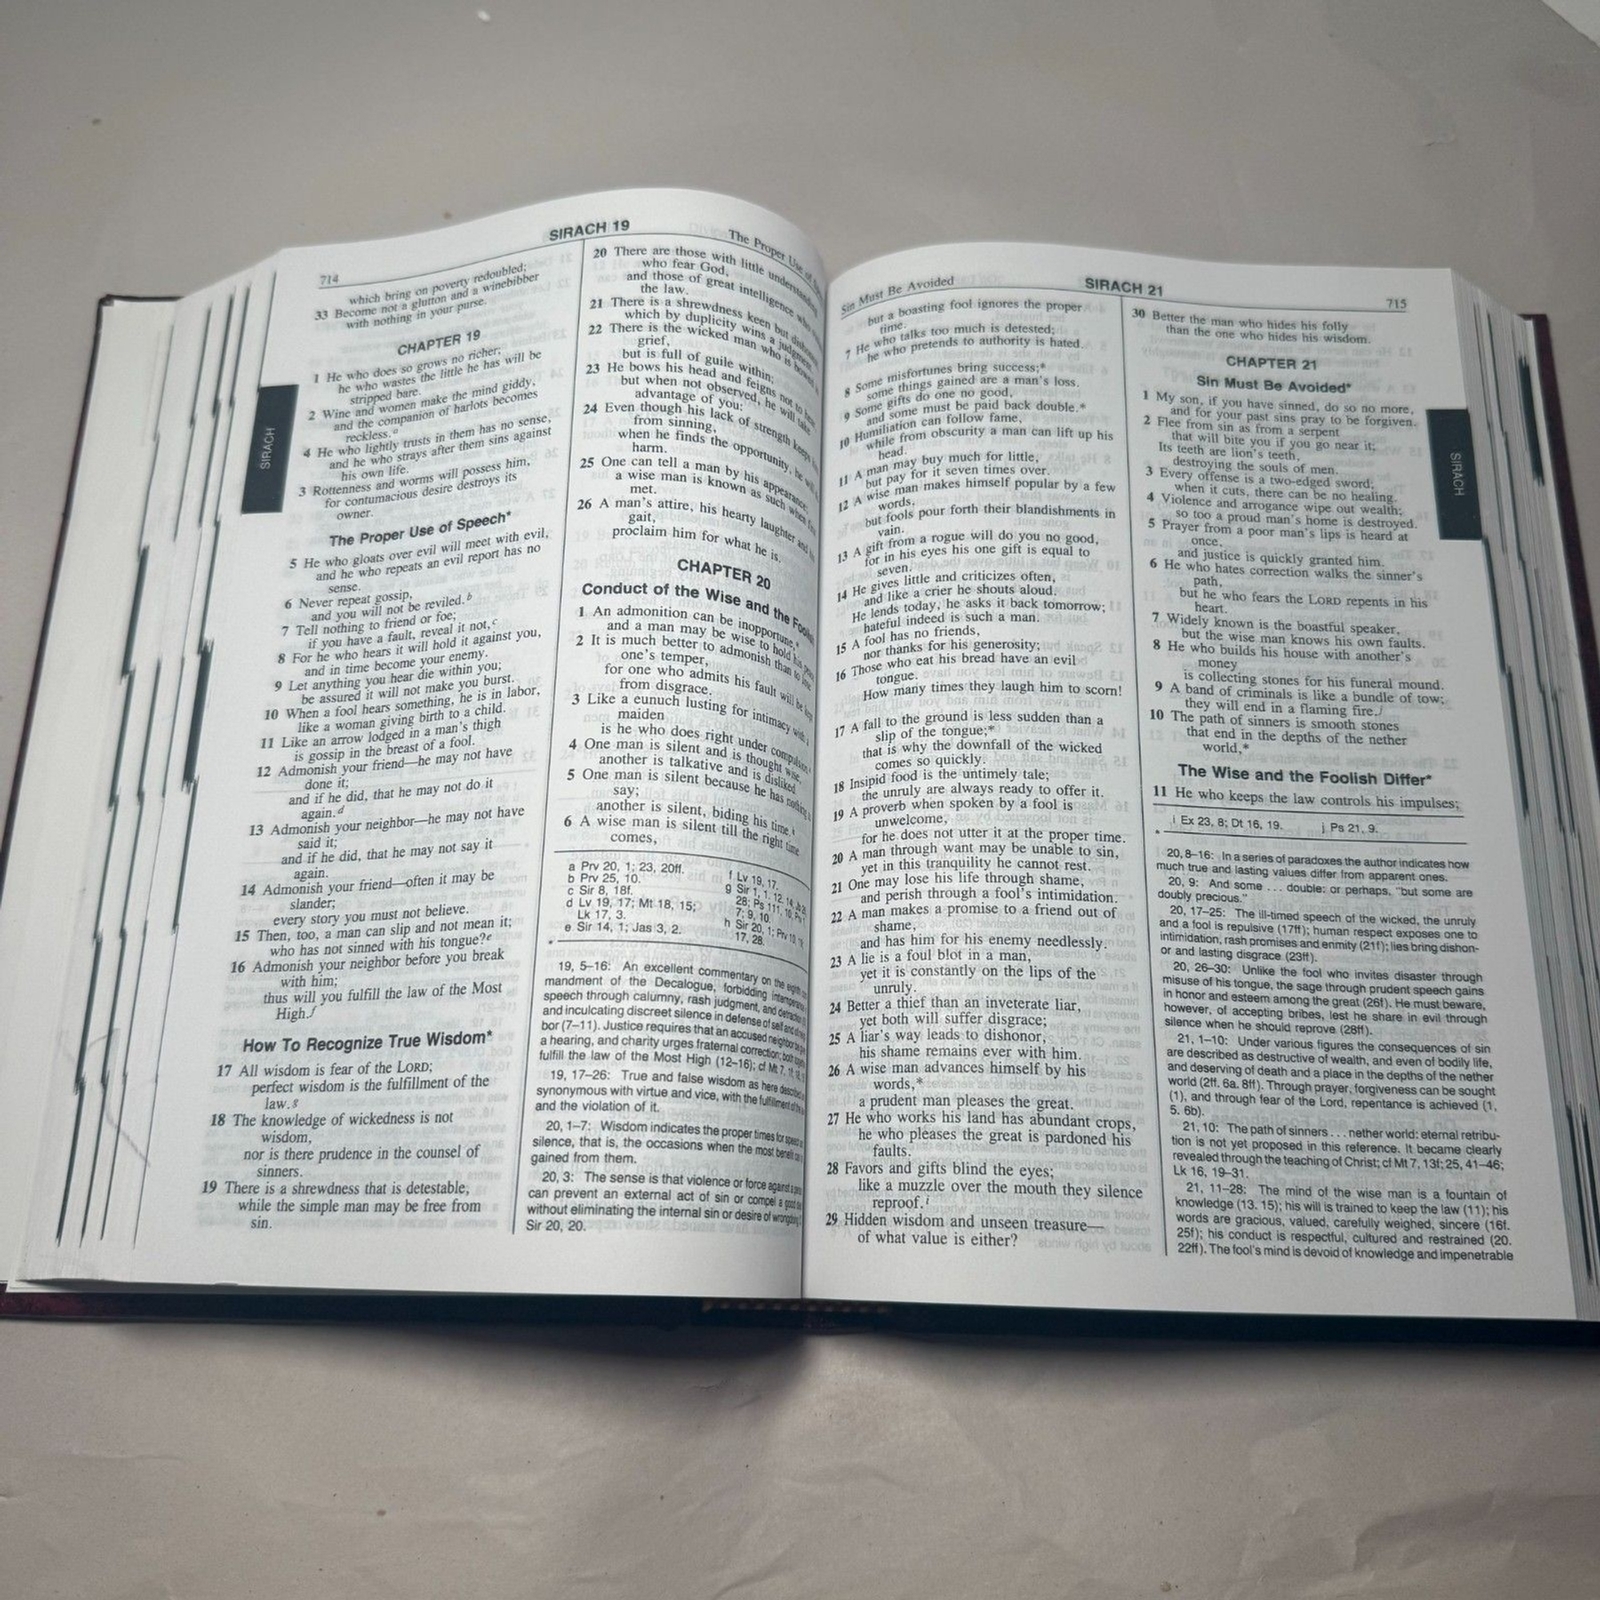 714
SIRACH 19
The Proper Use of
which bring on poverty redoubled;
33 Become not a glutton and a winebibber
with nothing in your purse.
CHAPTER 19
1 He who does so grows no richer;
he who wastes the little he has will be
stripped bare.
2 Wine and women make the mind giddy,
and the companion of harlots becomes
reckless.a
4 He who lightly trusts in them has no sense,
and he who strays after them sins against
his own life.
3 Rottenness and worms will possess him,
for contumacious desire destroys its
owner.
The Proper Use of Speech*
5 He who gloats over evil will meet with evil,
and he who repeats an evil report has no
sense.
6 Never repeat gossip,
and you will not be reviled.b
7 Tell nothing to friend or foe;
if you have a fault, reveal it not,c
8 For he who hears it will hold it against you,
and in time become your enemy.
9 Let anything you hear die within you;
be assured it will not make you burst.
10 When a fool hears something, he is in labor,
like a woman giving birth to a child.
11 Like an arrow lodged in a man's thigh
is gossip in the breast of a fool.
12 Admonish your friend—he may not have
done it;
and if he did, that he may not do it
again.d
13 Admonish your neighbor—he may not have
said it;
and if he did, that he may not say it
again.
14 Admonish your friend—often it may be
slander;
every story you must not believe.
15 Then, too, a man can slip and not mean it;
who has not sinned with his tongue?e
16 Admonish your neighbor before you break
with him;
thus will you fulfill the law of the Most
High.f
How To Recognize True Wisdom*
17 All wisdom is fear of the LORD;
perfect wisdom is the fulfillment of the
law.g
18 The knowledge of wickedness is not
wisdom,
nor is there prudence in the counsel of
sinners.
19 There is a shrewdness that is detestable,
while the simple man may be free from
sin.
SIRACH
20 There are those with little understanding
who fear God,
and those of great intelligence who
the law.
21 There is a shrewdness keen but
which by duplicity wins a judgment.
22 There is the wicked man who is bowed
grief,
but is full of guile within;
23 He bows his head and feigns not to hear
but when not observed, he will take
advantage of you:
24 Even though his lack of strength keeps
from sinning,
when he finds the opportunity, he
harm.
25 One can tell a man by his appearance;
a wise man is known as such when
met.
26 A man's attire, his hearty laughter and
gait,
proclaim him for what he is.
CHAPTER 20
Conduct of the Wise and the
1 An admonition can be inopportune,*
and a man may be wise to hold his
2 It is much better to admonish than to lose
one's temper,
for one who admits his fault will be
from disgrace.
3 Like a eunuch lusting for intimacy with a
maiden
is he who does right under
4 One man is silent and is thought wise,
another is talkative and is disliked
5 One man is silent because he has nothing
say;
another is silent, biding his time.
6 A wise man is silent till the right time
comes,
a Prv 20, 1; 23, 20ff.
b Prv 25, 10.
c Sir 8, 18f.
d Lv 19, 17; Mt 18, 15;
Lk 17, 3.
e Sir 14, 1; Jas 3, 2.
f Lv 19, 17.
g Sir 1, 1. 12. 14.
28; Ps 111, 10; Prv 1,
7; 9, 10.
h Sir 20, 1; Prv
17, 28.
*
19, 5-16: An excellent commentary on the eighth
mandment of the Decalogue, forbidding
speech through calumny, rash judgment, and
and inculcating discreet silence in defense of self and of
bor (7-11). Justice requires that an accused neighbor be
a hearing, and charity urges fraternal correction;
fulfill the law of the Most High (12-16); cf Mt 7,
19, 17-26: True and false wisdom as here described
synonymous with virtue and vice, with the fulfillment of
and the violation of it.
20, 1-7: Wisdom indicates the proper times for speech
silence, that is, the occasions when the most benefit
gained from them.
20, 3: The sense is that violence or force against a
can prevent an external act of sin or compel a good
without eliminating the internal sin or desire of wrongdoing
Sir 20, 20.
Sin Must Be Avoided
SIRACH 21
715
but a boasting fool ignores the proper
time.
7 He who talks too much is detested;
he who pretends to authority is hated.
8 Some misfortunes bring success;*
some things gained are a man's loss.
9 Some gifts do one no good,
and some must be paid back double.*
10 Humiliation can follow fame,
while from obscurity a man can lift up his
head.
11 A man may buy much for little,
but pay for it seven times over.
12 A wise man makes himself popular by a few
words,
but fools pour forth their blandishments in
vain.
13 A gift from a rogue will do you no good,
for in his eyes his one gift is equal to
seven.
14 He gives little and criticizes often,
and like a crier he shouts aloud.
He lends today, he asks it back tomorrow;
hateful indeed is such a man.
15 A fool has no friends,
nor thanks for his generosity;
16 Those who eat his bread have an evil
tongue.
How many times they laugh him to scorn!
17 A fall to the ground is less sudden than a
slip of the tongue;*
that is why the downfall of the wicked
comes so quickly.
18 Insipid food is the untimely tale;
the unruly are always ready to offer it.
19 A proverb when spoken by a fool is
unwelcome,
for he does not utter it at the proper time.
20 A man through want may be unable to sin,
yet in this tranquility he cannot rest.
21 One may lose his life through shame,
and perish through a fool's intimidation.
22 A man makes a promise to a friend out of
shame,
and has him for his enemy needlessly.
23 A lie is a foul blot in a man,
yet it is constantly on the lips of the
unruly.
24 Better a thief than an inveterate liar,
yet both will suffer disgrace;
25 A liar's way leads to dishonor,
his shame remains ever with him.
26 A wise man advances himself by his
words,*
a prudent man pleases the great.
27 He who works his land has abundant crops,
he who pleases the great is pardoned his
faults.
28 Favors and gifts blind the eyes;
like a muzzle over the mouth they silence
reproof.i
29 Hidden wisdom and unseen treasure—
of what value is either?
30 Better the man who hides his folly
than the one who hides his wisdom.
CHAPTER 21
Sin Must Be Avoided*
1 My son, if you have sinned, do so no more,
and for your past sins pray to be forgiven.
2 Flee from sin as from a serpent
that will bite you if you go near it;
Its teeth are lion's teeth,
destroying the souls of men.
3 Every offense is a two-edged sword;
when it cuts, there can be no healing.
4 Violence and arrogance wipe out wealth;
so too a proud man's home is destroyed.
5 Prayer from a poor man's lips is heard at
once,
and justice is quickly granted him.
6 He who hates correction walks the sinner's
path,
but he who fears the LORD repents in his
heart.
7 Widely known is the boastful speaker,
but the wise man knows his own faults.
8 He who builds his house with another's
money
is collecting stones for his funeral mound.
9 A band of criminals is like a bundle of tow;
they will end in a flaming fire.j
10 The path of sinners is smooth stones
that end in the depths of the nether
world.*
The Wise and the Foolish Differ*
11 He who keeps the law controls his impulses;
SIRACH
i Ex 23, 8; Dt 16, 19.
j Ps 21, 9.
*
20, 8-16: In a series of paradoxes the author indicates how
much true and lasting values differ from apparent ones.
20, 9: And some . . . double: or perhaps, "but some are
doubly precious."
20, 17-25: The ill-timed speech of the wicked, the unruly
and a fool is repulsive (17ff); human respect exposes one to
intimidation, rash promises and enmity (21f); lies bring dishon-
or and lasting disgrace (23ff).
20, 26-30: Unlike the fool who invites disaster through
misuse of his tongue, the sage through prudent speech gains
in honor and esteem among the great (26f). He must beware,
however, of accepting bribes, lest he share in evil through
silence when he should reprove (28ff).
21, 1-10: Under various figures the consequences of sin
are described as destructive of wealth, and even of bodily life,
and deserving of death and a place in the depths of the nether
world (2ff. 6a. 8ff). Through prayer, forgiveness can be sought
(1), and through fear of the Lord, repentance is achieved (1,
5. 6b).
21, 10: The path of sinners . . . nether world: eternal retribu-
tion is not yet proposed in this reference. It became clearly
revealed through the teaching of Christ; cf Mt 7, 13f; 25, 41-46;
Lk 16, 19-31.
21, 11-28: The mind of the wise man is a fountain of
knowledge (13. 15); his will is trained to keep the law (11); his
words are gracious, valued, carefully weighed, sincere (16f.
25f); his conduct is respectful, cultured and restrained (20.
22ff). The fool's mind is devoid of knowledge and impenetrable